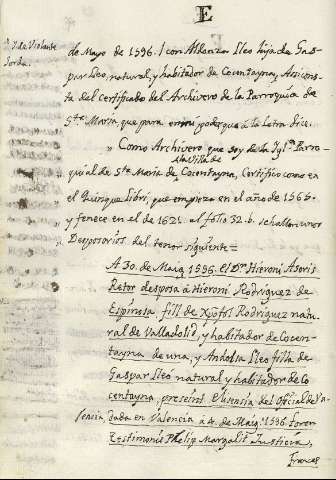 E
y de Violante
Jorda.
de Mayo de 1596. / con Aldonza Lleo hija de Gas-
par Lleo, natural, y habitador de Cocentayna, Assi cons-
ta del certificado del Archivero de la Parroquia de
Sta. Maria, que para en mi poder que à la Letra dice.
" Como Archivero que soy de la Iglª Parro-
la Villa de
" quial de Sta. Maria de Cocentayna, Certifico como en
" el Quinque Libri, que empieza en el año de 1565.
" y fenece en el de 1621. al folio 32. b. se hallan unos
" Desposorios del tenor siguiente =
A 30. de Maig 1596. El Dr. Hieroni Asoris
Retor desposà à Hieroni Rodriguez de
Espinosa, fill de Xpòfol Rodriguez natu-
ral de Valladolid, y habitador de Cocen-
tayna de una, y Andolsa Lleo filla de
Gaspar Lleó natural y habitador de Co-
centayna, presint llisensia del Oficial de Va-
lensia, dada en Valencia à 4. de Maig: 1596. foren
Testimonis Phelip Margalit Justicia,
Frances